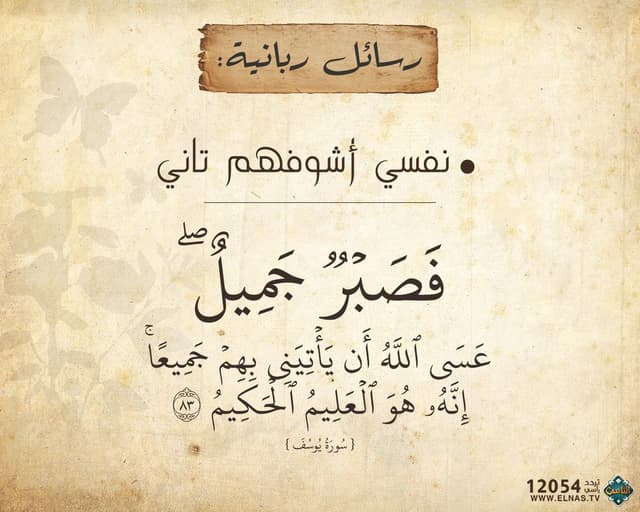 رسائل ربانية:
• نفسي أشوفهم تاني
فَصَبْرٌ جَمِيلٌ ۖ
عَسَى ٱللَّهُ أَن يَأْتِيَنِى بِهِمْ جَمِيعًا ۚ
إِنَّهُۥ هُوَ ٱلْعَلِيمُ ٱلْحَكِيمُ ٨٣
{ سُورَةُ يُوسُفَ }
12054 تردد رأسي
WWW.ELNAS.TV
الناس